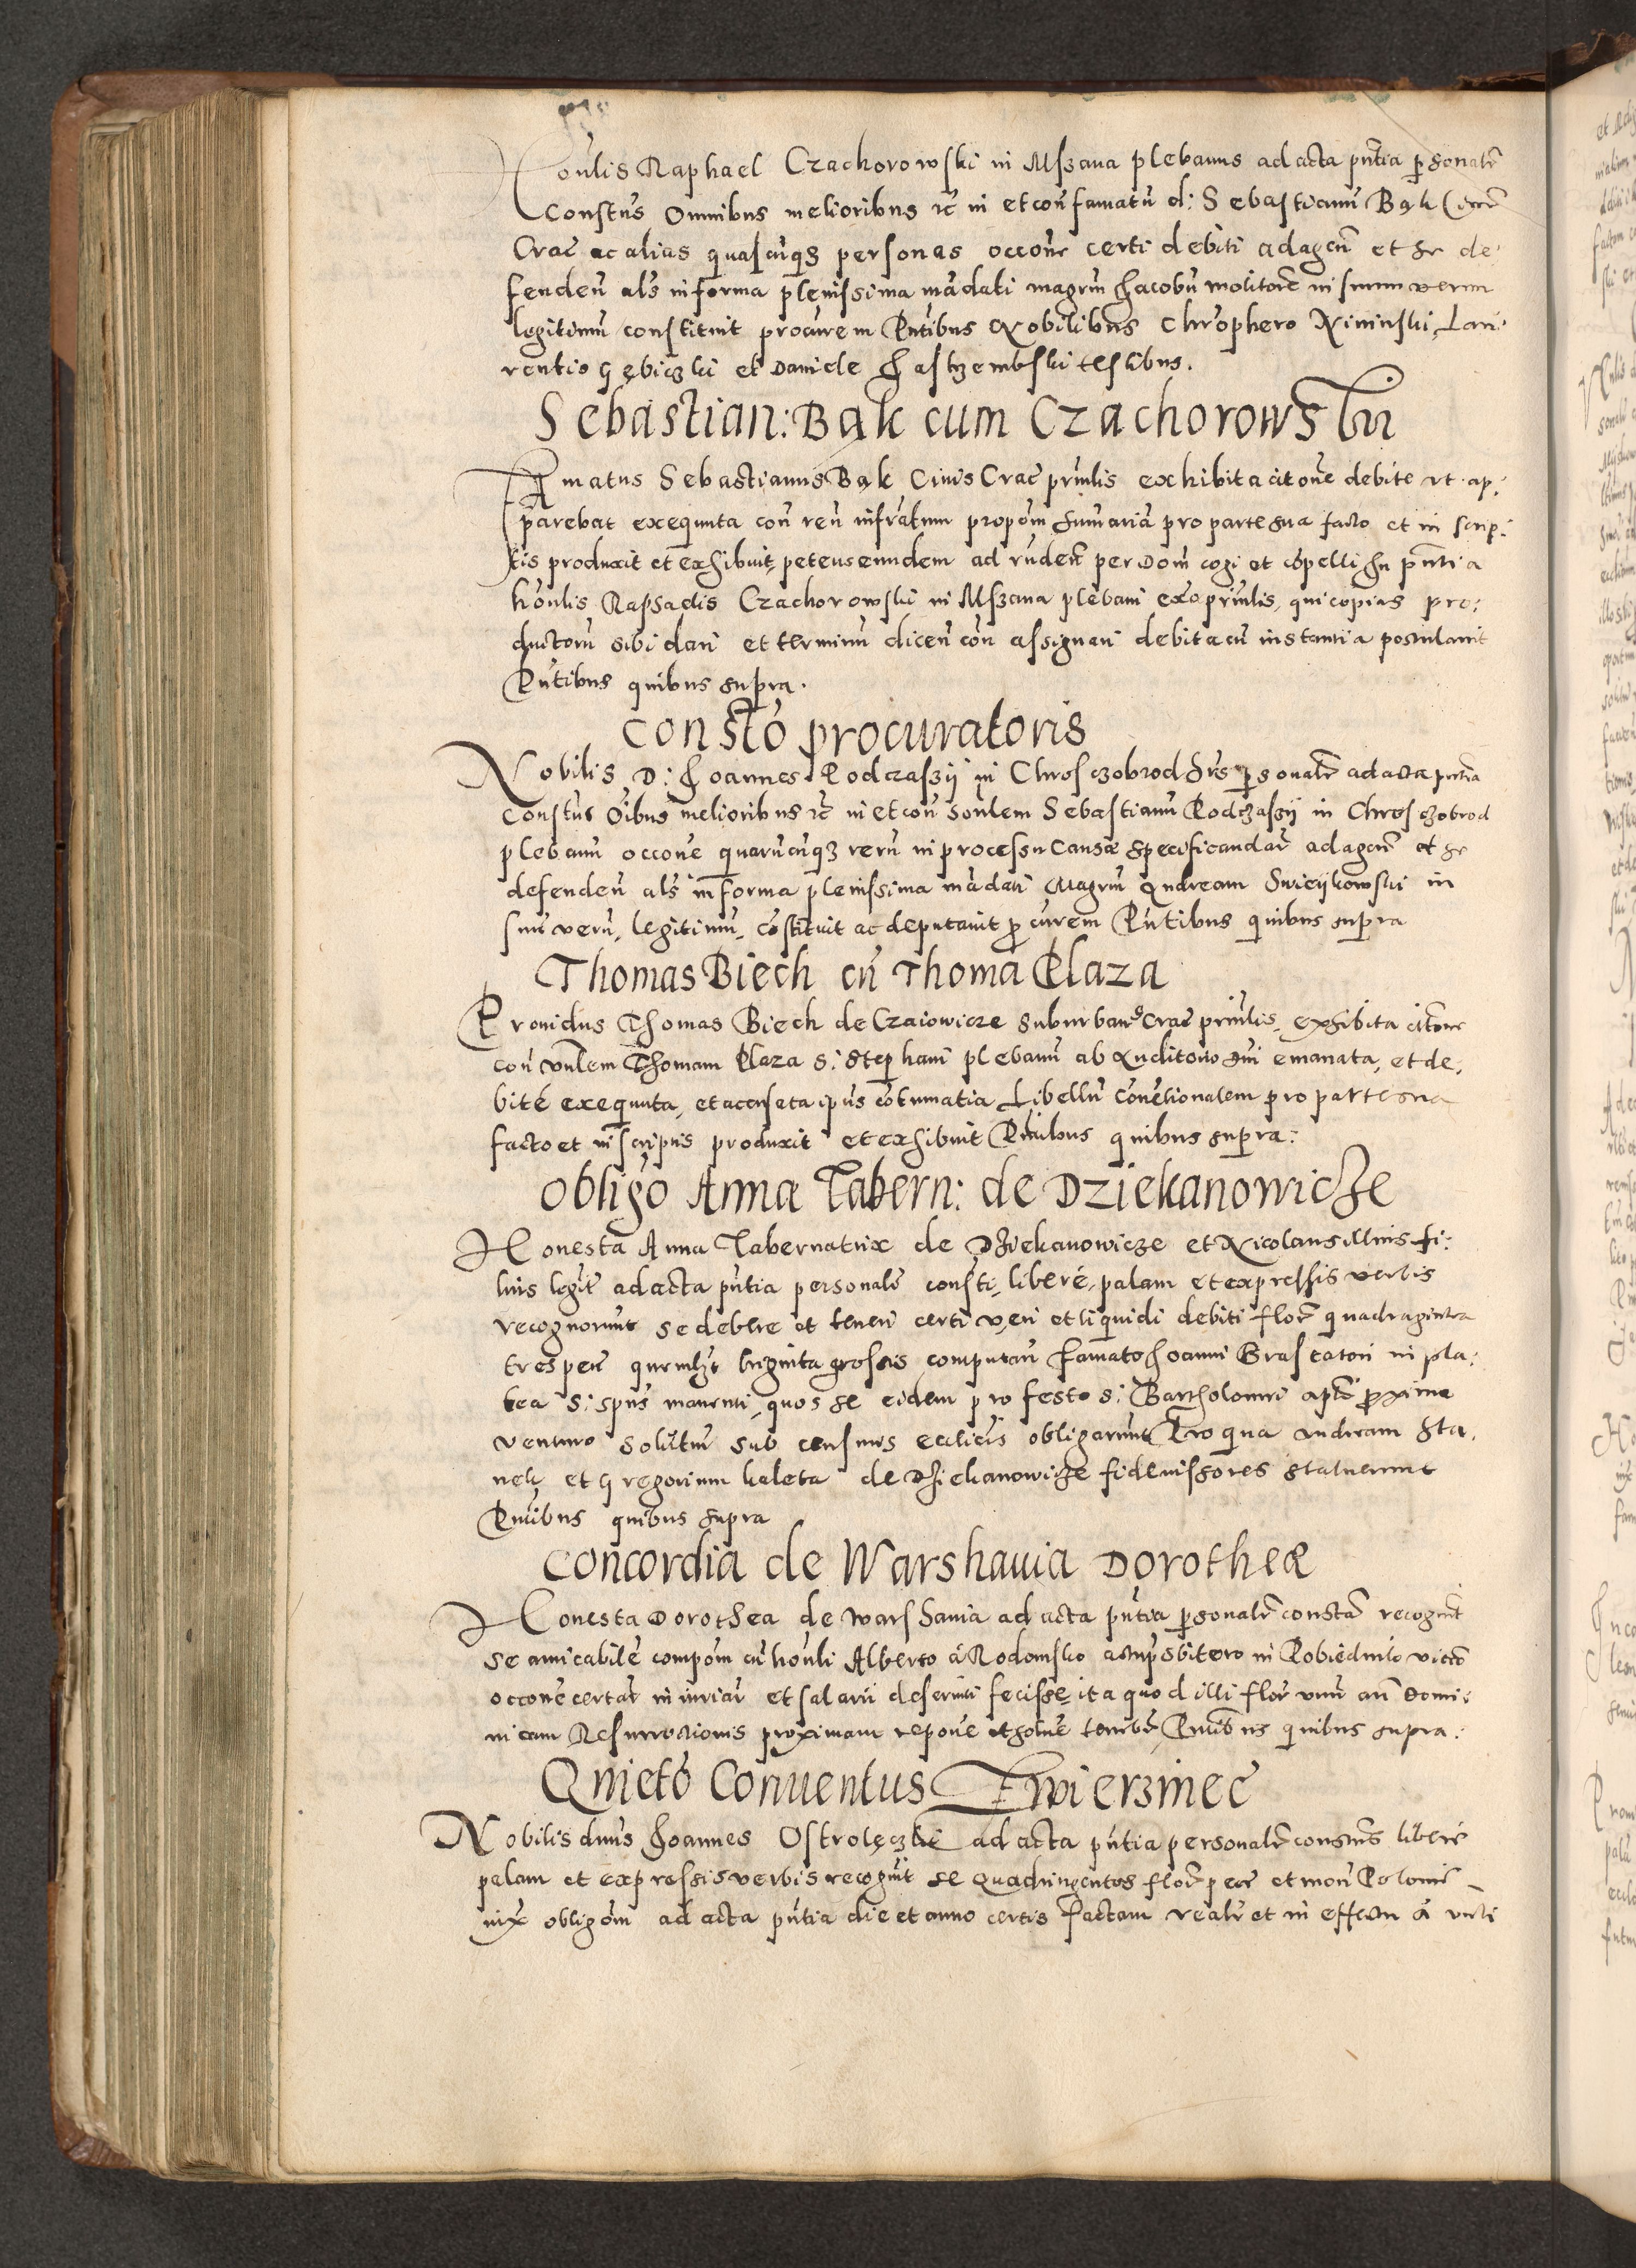 Honlis Raphael Czachorowski in Mszana plebanus ad acta pntia psonalr
Constus Omnibus melioribus rc in et con famatu d: Sebastianu Bąk Civem
Crac ac alias quascuqz personas occone certi debiti ad agen et se de
fenden als in forma plenissima madati magrum Jacobu molitore in suum verum
legitimu constituit procurem Pntibus Nobilibus Chrophero Niminski Lau
rentio Gębiczki et Daniele Jastrzembski testibus.
Sebastian: Bąk cum Czachorowski
Famatus Sebastianus Bąk Civis Crac prnlis exhibita citone debite ut ap:
parebat exequuta con reu infratum propom sumaria pro parte sua facto et in scrip:
tis produxit et exhibuit, petens eundem ad rnden per Dom cogi et copelli In pntia
honlis Raphaelis Czachorowski in Mszana plebani ex o prnlis, qui copias pro:
ductoru sibi dari et terminu dicen con assignari debita cu instantia postulavit
Pntibus quibus supra.
Consto procuratoris
Nobilis D: Joannes Podczaszy in Chrosczobrod Hrs psonalr ad acta pntia
Constus Oibus melioribus rc in et con honlem Sebastianu Podczaszy in Chrosczobrod
plebanu occone quarucuqz reru in processu Causae specificandar ad agen et se
defenden als in forma plenissima madati Magrum Andream Swieykowski in
suu veru, legitimu, costituit ac deputavit pcurem Pntibus quibus supra
Thomas Biech cu Thoma Plaza
Providus Thomas Biech de Czaiowicze suburbanus Crac prnlis, exhibita citone
con vnlem Thomam Plaza S: Stephani plebanu ab Auditorio sui emanata, et de:
bite exequuta, et accusata ipius cotumatia Libellu Conventionalem pro parte sua
facto et in scriptis produxit et exhibuit Pntibus quibus supra:
Obligo Anna Tabern: de Dziekanowicze
Honesta Anna Tabernatrix de Dziekanowicze et Nicolaus illius fi:
lius legit ad acta pntia personalr consti, libere, palam et expressis verbis
recognorunt se debere et teneri certi veri et liquidi debiti flor quadraginta
tres pec quemlibet triginta grossis computan Famato Joanni Brascatori in pla:
tea S: Spus manenti, quos se eidem pro festo S: Bartholomei apli proxime
venturo soluturu sub censuris ecclicis obligarunt Pro qua Andream Sta,
nek et Gregorium kaleta de Dziekanowicze fideiussores statuerunt
Pntibus quibus supra
Concordia de Warshavia Dorotheae
Honesta Dorothea de Warshavia ad acta pntia psonalr constam recognit
se amicabile compom cu honli Alberto a Rodomsko actu prsbitero in Pobiednik vicco
occone certar iniuriar et salarii deserviti fecisse, ita quod illi flor vnu an Domi:
nicam Resurrectionis proximam repone et solve tenebr Pntibus quibus supra:
Quieto Conventus Zwierzinec
Nobilis dnus Joannes Ostrolęczki ad acta pntia personalr constus libere
palam et expressis verbis recognit se quadringentos flor pec et mon Poloni
nix obligom ad acta pntia die et anno certis Factam realr et in effectu a vnli